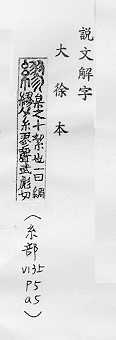 說文解字
大徐本
繆
枲之十絜也一曰綢
繆从糸翏聲武彪切
(糸部
V13上
P5
a5)